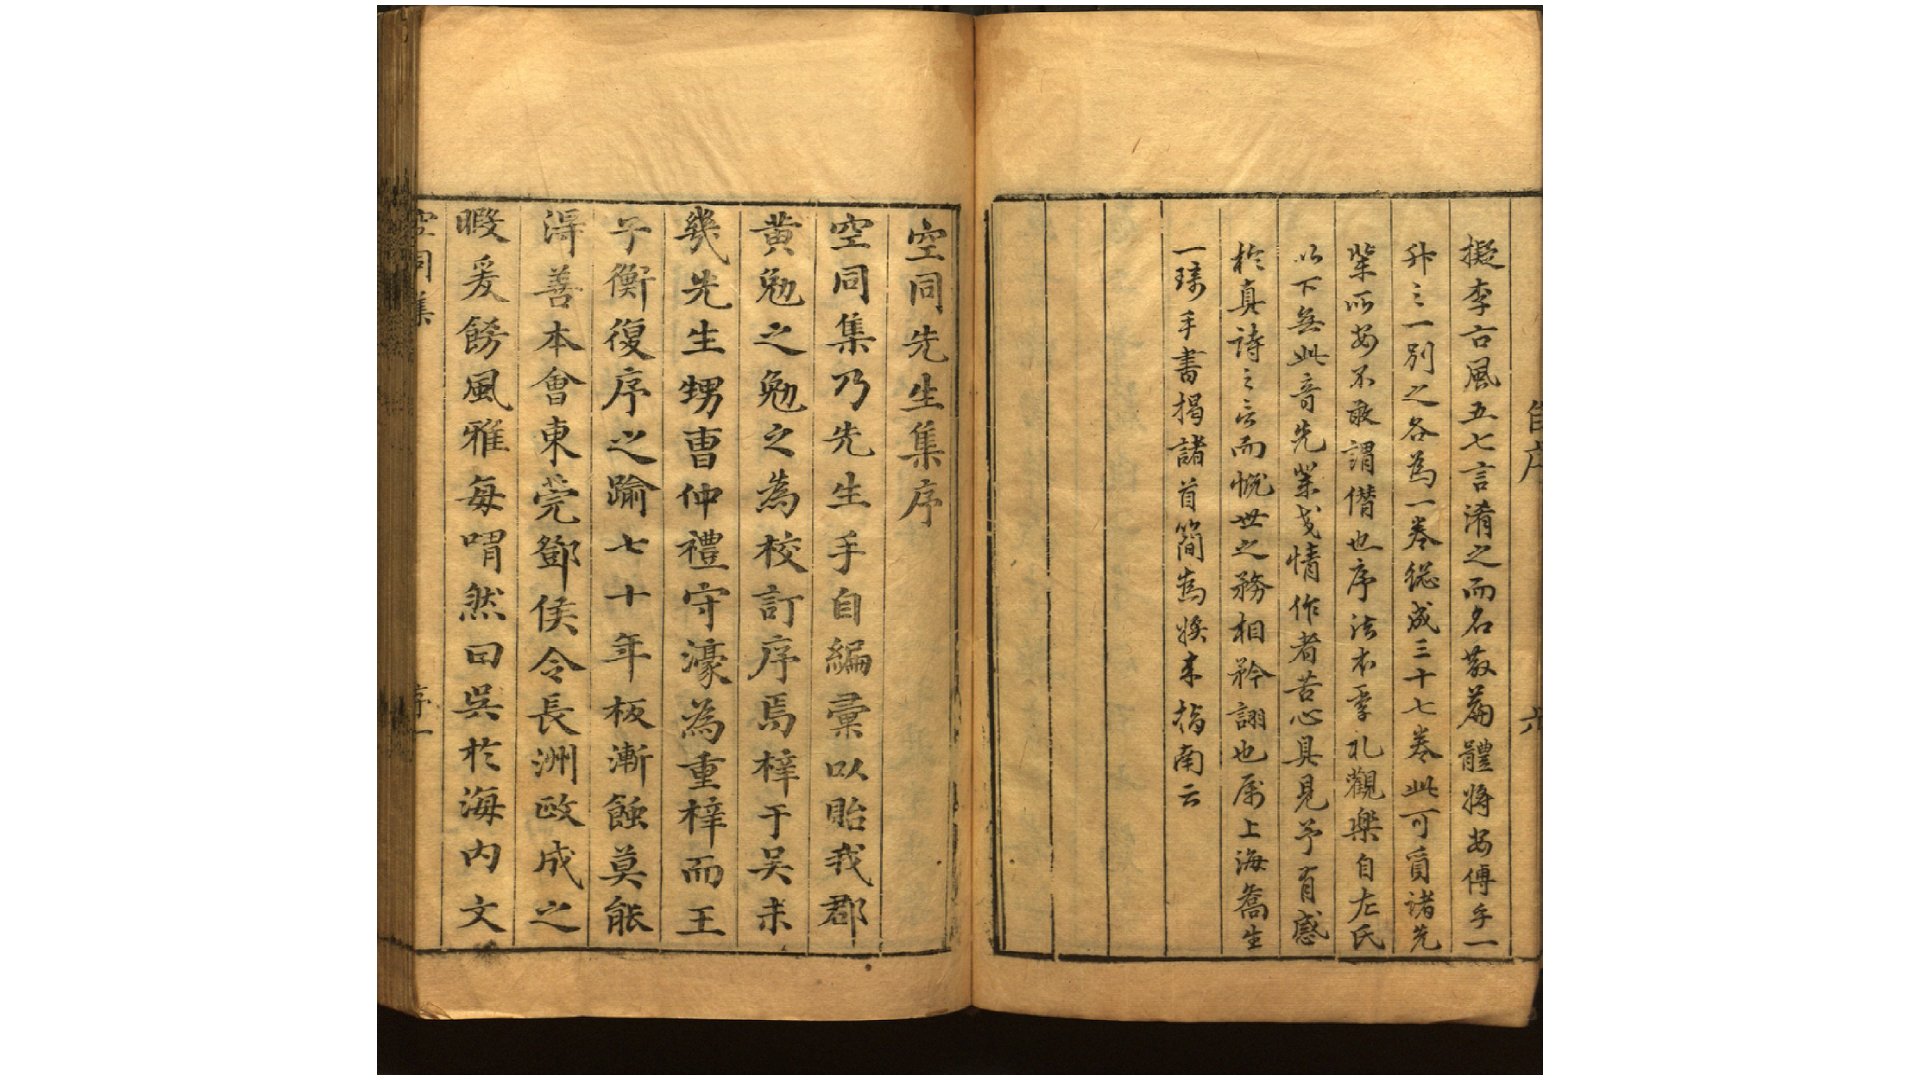 擬李古風五七言淆之而名敬篇體將安傳手一
弁之一別之各為一卷總成三十七卷此可質諸先
輩所安不敢謂僭也序法本季札觀樂自左氏
以下無此音先輩戔情作者苦心具見予有感
於真詩之言而慨世之務相矜詡也屬上海喬生
一琦手書揭諸首簡為將來指南云
空同先生集序
空同集乃先生手自編彙以貽我郡
黃勉之勉之為校訂序焉梓于吳未
幾先生甥曹仲禮守濠為重梓而王
子衡復序之踰七十年板漸蝕莫能
淂善本會東莞鄧侯令長洲政成之
暇爰餝風雅每喟然曰吳於海內文
空同集
序一